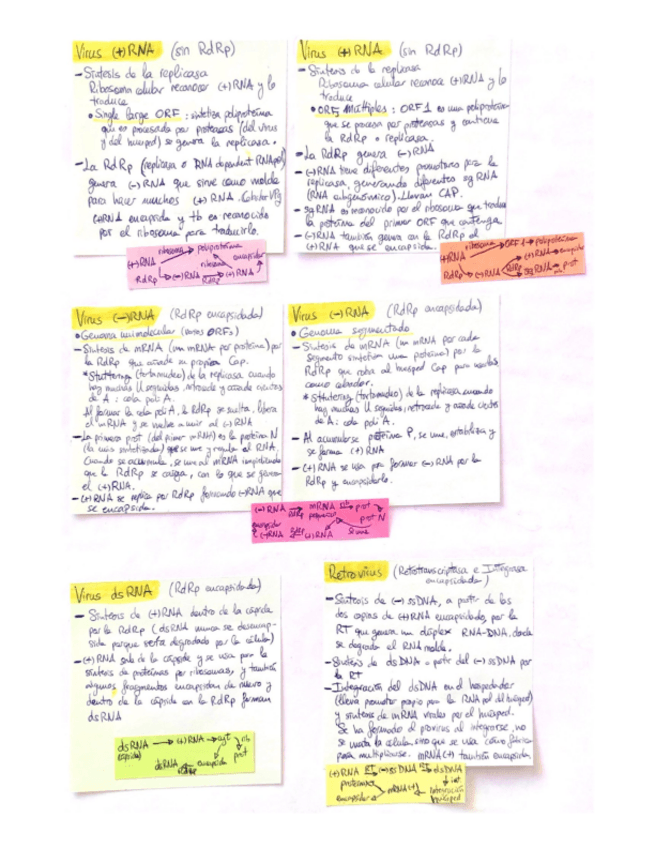 Virus (+)RNA (sin RdRp)
- Síntesis de la replicasa
Ribosoma celular reconoce (+)RNA y lo
traduce
• Single large ORF: sintetiza poliproteína
que es procesada por proteasas (del virus
y del huésped) se genera la replicasa.
- La RdRp (replicasa o RNA dependent RNApol)
genera (-)RNA que sirve como molde
para hacer muchos (+)RNA.
encapsida y tb es reconocido
por el ribosoma para traducirlo.
(+)RNA ribosoma poliproteína
RdRp → (-)RNA RdRp → (+)RNA
ribosoma encapsidar
Virus (+)RNA (sin RdRp)
- Síntesis de la replicasa
Ribosoma celular reconoce (+)RNA y lo
traduce
• ORFs Múltiples: ORF1 es una poliproteína
que se procesa por proteasas y contiene
la RdRp o replicasa.
- La RdRp genera (-)RNA
- (-)RNA tiene diferentes promotores para la
replicasa, generando diferentes sg RNA
(RNA subgenómico). Llevan CAP.
- sgRNA es reconocido por el ribosoma que traduce
la proteína del primer ORF que contenga.
- (-)RNA también genera con la RdRp el
(+)RNA que se encapsida.
(+)RNA ribosoma → ORF1 → poliproteína
RdRp → (-)RNA RdRp → (+)RNA → encapsidar
sgRNA → prot
Virus (-)RNA (RdRp encapsidada)
• Genoma unimolecular (varios ORFs)
- Síntesis de mRNA (un mRNA por proteína) por
la RdRp que añade su propia Cap.
* Stuttering (tartamudeo) de la replicasa cuando
hay muchas U seguidas, retrocede y añade cientos
de A: cola poli A.
Al formar la cola poli A, la RdRp se suelta, libera
el mRNA y se vuelve a unir al (-)RNA
- La primera prot (del primer mRNA) es la proteína N
(la más sintetizada) que se une y regula el RNA.
Cuando se acumula, se une al mRNA impidiendo
que la RdRp se caiga, con lo que se genera
el (+)RNA.
- (+)RNA se replica por RdRp formando (-)RNA que
se encapsida.
Virus (-)RNA (RdRp encapsidada)
• Genoma segmentado
- Síntesis de mRNA (un mRNA por cada
segmento sintetiza una proteína) por la
RdRp que roba al huésped Cap para usarlas
como cebador.
* Stuttering (tartamudeo) de la replicasa cuando
hay muchas U seguidas, retrocede y añade cientos
de A: cola poli A.
- Al acumularse proteína P, se une, estabiliza y
se forma (+)RNA
- (+)RNA se usa para formar (-)RNA por la
RdRp y encapsidarlo.
(-)RNA RdRp → mRNA rib → prot
prot N
encapsidar
(-)RNA RdRp (+)RNA se une
Virus dsRNA (RdRp encapsidada)
- Síntesis de (+)RNA dentro de la cápside
por la RdRp (dsRNA nunca se desencap-
side porque sería degradado por la célula)
- (+)RNA sale de la cápside y se usa para la
síntesis de proteínas por ribosomas, y también
algunos fragmentos encapsidan de nuevo y
dentro de la cápside con la RdRp forman
dsRNA
dsRNA → (+)RNA → cyt rib
(cápside) prot
dsRNA encapsida
Retrovirus (Retrotranscriptasa e Integrasa
encapsidadas)
- Síntesis de (-) ssDNA, a partir de las
dos copias de (+)RNA encapsidado, por la
RT que genera un dúplex RNA-DNA, donde
se degrada el RNA molde.
- Síntesis de dsDNA a partir del (-) ssDNA por
la RT
- Integración del dsDNA en el hospedador
(lleva promotor propio para la RNA pol del huésped)
y síntesis de mRNA virales por el huésped.
Se ha formado el provirus al integrarse, no
se mata la célula sino que se usa como fábrica
para multiplicarse. mRNA(+) también encapsida
(+)RNA RT → (-)ssDNA RT → dsDNA
proteínas int
encapsidar mRNA(+) integración
huésped